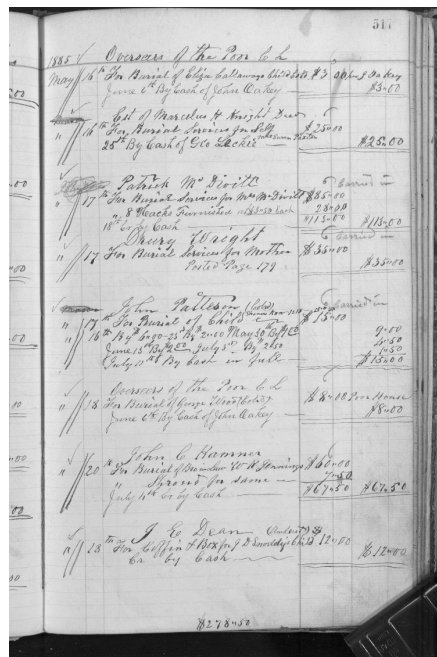 517
1885 Overseers of the Poor C L
May 16th For Burial of Eliza Callaways Child $3.00 John J Oakey
June 6th By Cash of John Oakey $3.00
Est of Marcelus H Knight Dead
" 16th For Burial Services for Self $25.00
25th By Cash of Geo Zeckie $25.00
Patrick McDivitt Carried in
" 17th For Burial Services for Mrs McDivitt $85.00
7/8 Hacks Furnished at $3.50 Each 28.00
18th Cr by Cash $113.00 $113.00
Drury Wright Carried in
" 17 For Burial Services for Mother $35.00
Posted Page 179 $35.00
John Patterson (Cold) Carried in
" 17th For Burial of Child $15.00
" 18th By 6.00 25th By 2.00 May 30th By 1.00 9.00
June 13th By 2.00 July 3rd By 2.50
July 11th By Cash in full 1.50
$15.00
Overseers of the Poor C L
" 18 For Burial of George Wood (Cold) $8.00 Poor House
June 6th By Cash of John Oakey $8.00
John C Hamner
" 20th For Burial of W H Jennings $60.00
" Shroud for same 7.50
July 4th Cr by Cash $67.50 $67.50
J E Dean
" 18th For Coffin & Box for J D Snoddys Child 12.00
Cr by Cash $12.00
$278.50